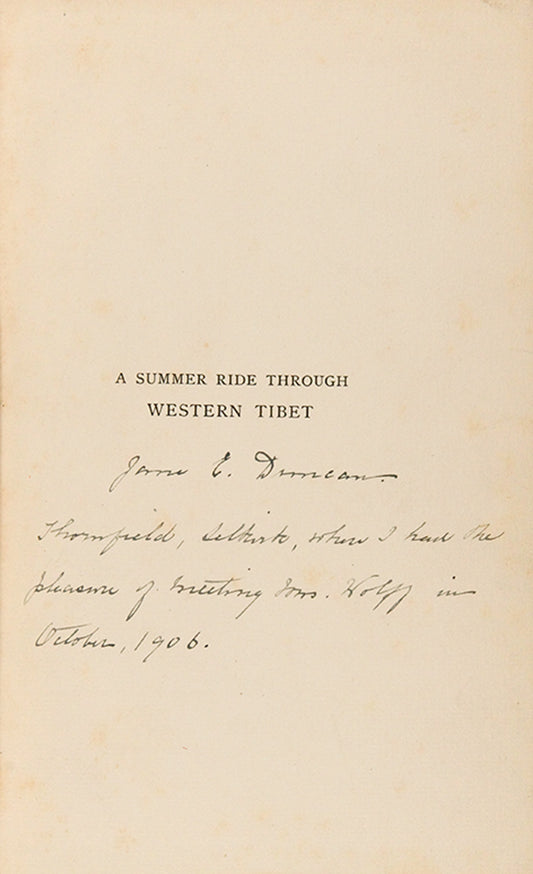 A SUMMER RIDE THROUGH
WESTERN TIBET
Jane E. Duncan.
Thornfield, Selkirk, where I had the
pleasure of meeting Mrs. Wolff in
October, 1906.